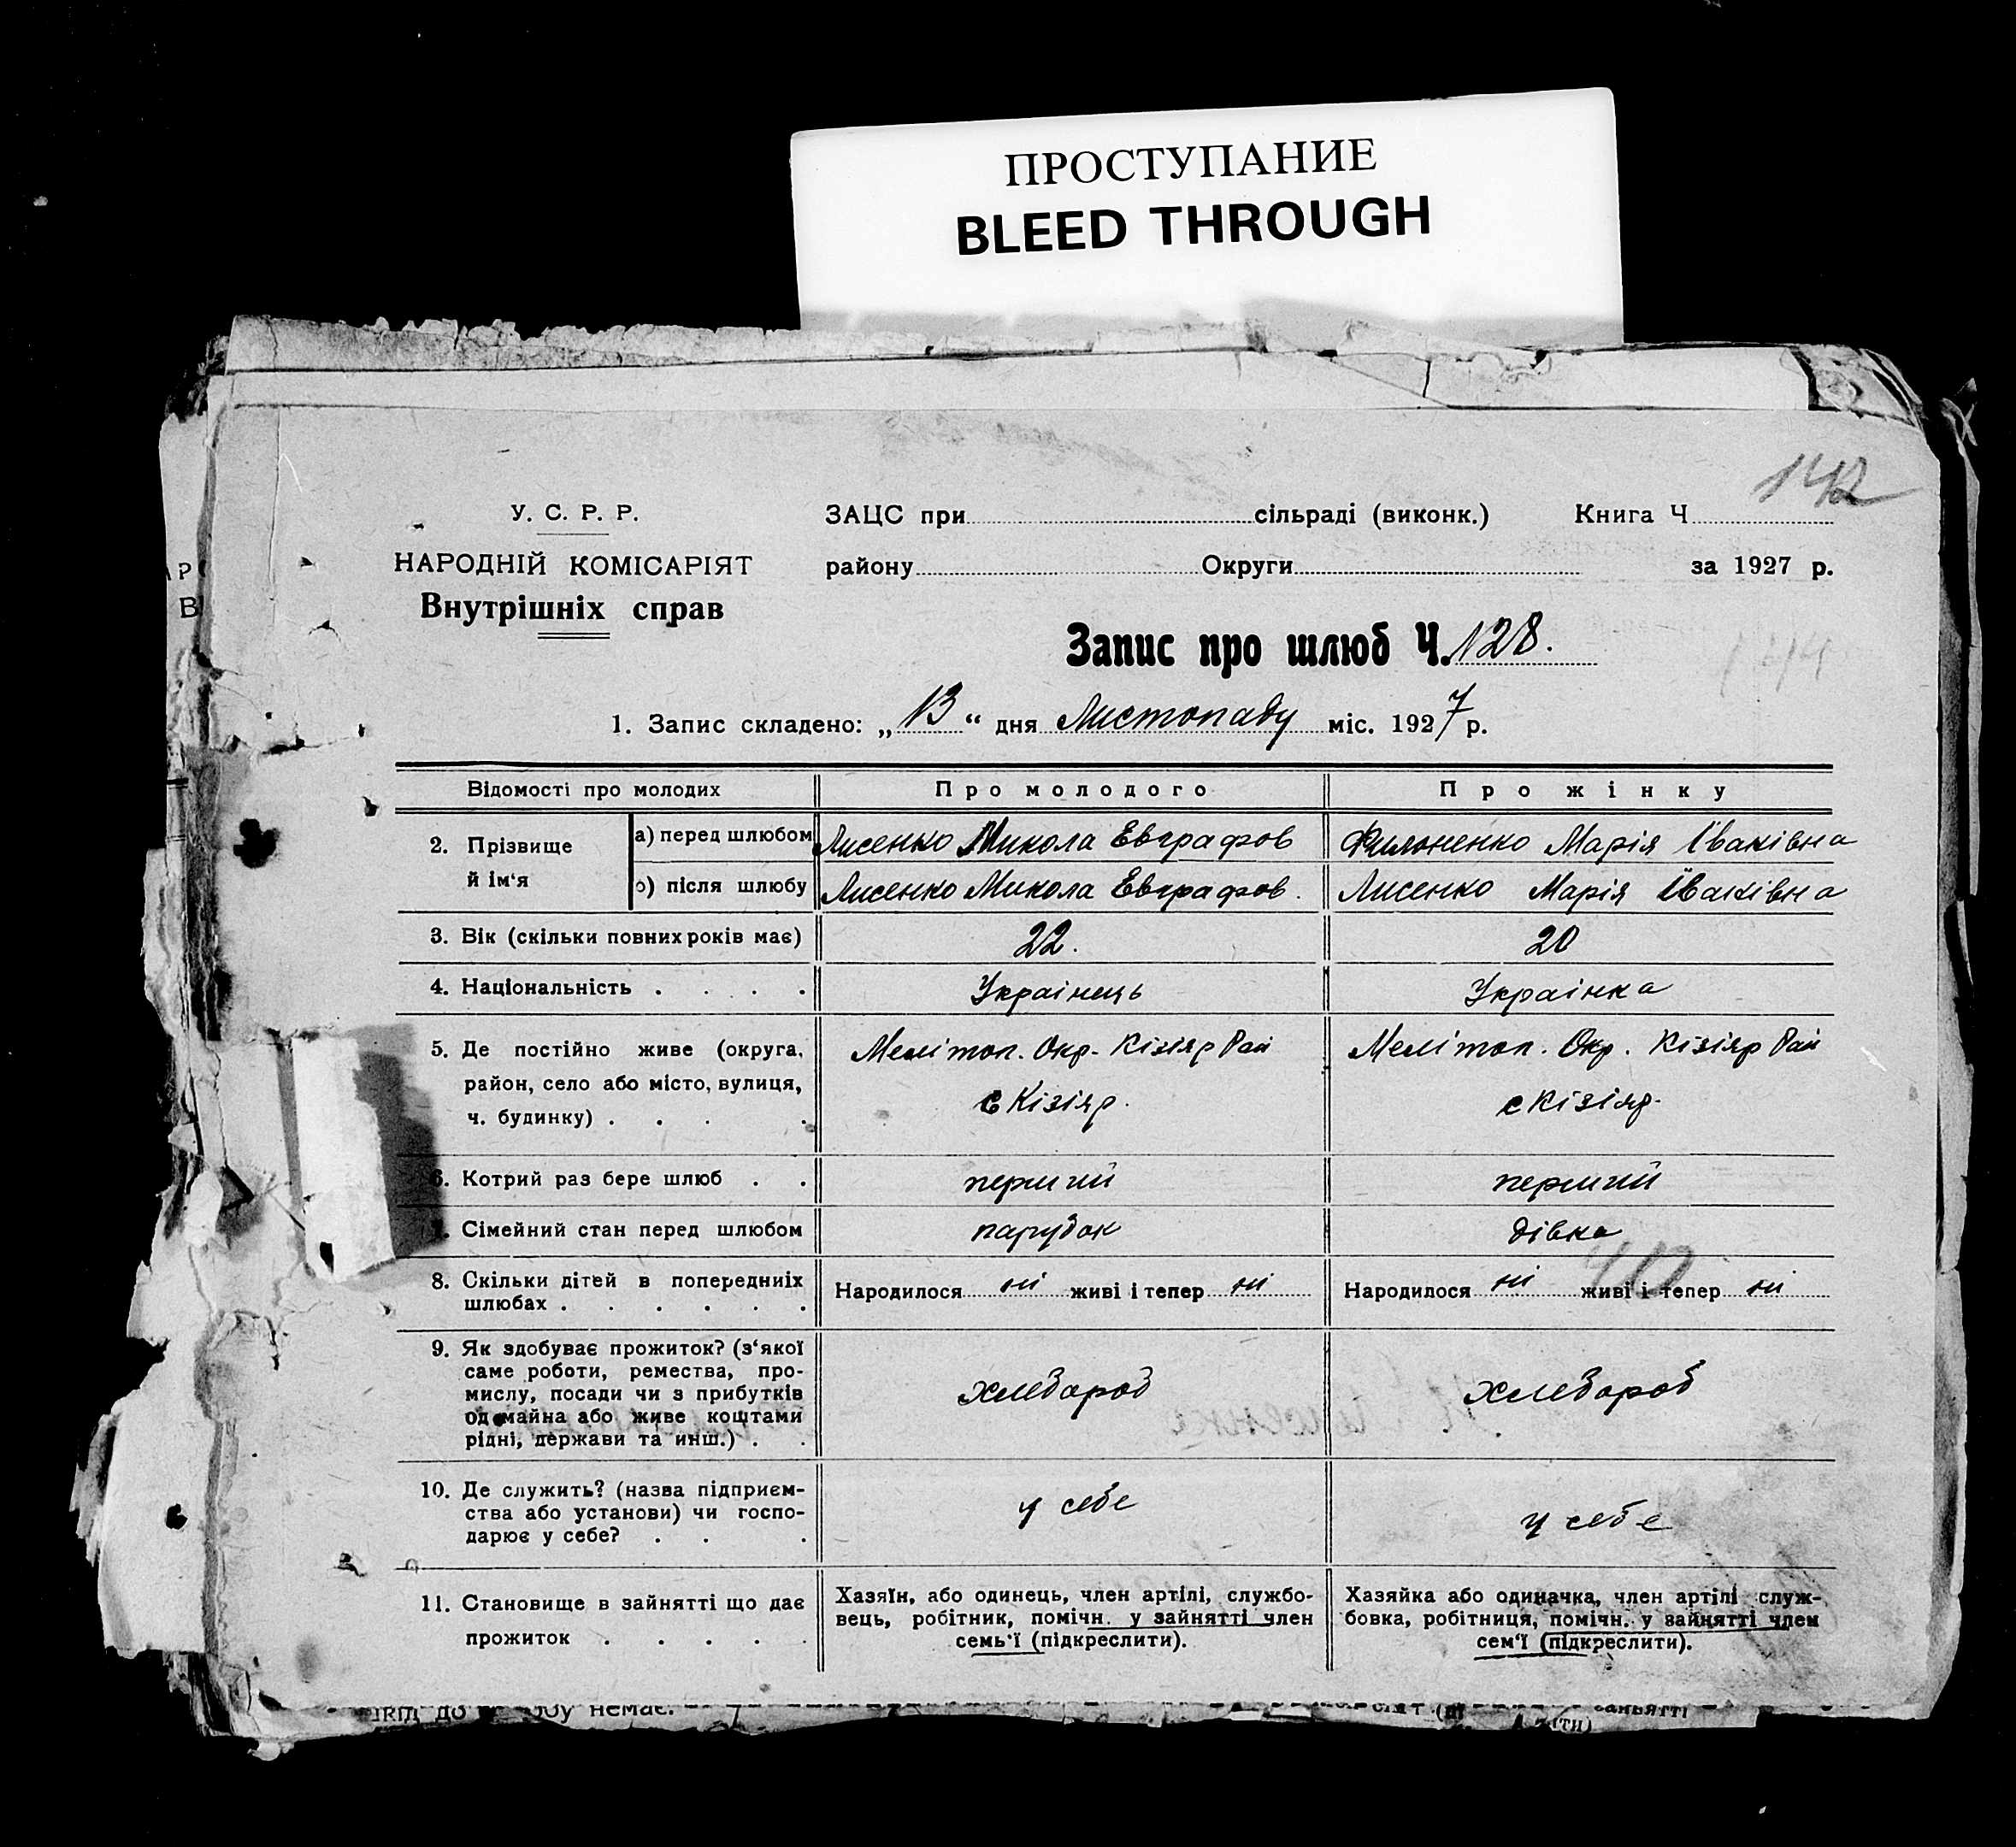 ПРОСТУПАНИЕ
BLEED THROUGH
142
У. С. Р. Р.
НАРОДНІЙ КОМІСАРІЯТ
Внутрішніх справ
ЗАЦС при сільраді (виконк.) Книга Ч
району Округи за 1927 р.
Запис про шлюб Ч. 128.
1. Запис складено: „13“ дня Листопаду міс. 1927 р.
Відомості про молодих Про молодого Про жінку
2. Прізвище й ім‘я
а) перед шлюбом Лисенко Микола Евграфов Филоненко Марія Іваківна
б) після шлюбу Лисенко Микола Евграфов. Лисенко Марія Іваківна
3. Вік (скільки повних років має) 22. 20
4. Національність . . . . Українець Українка
5. Де постійно живе (округа, Мелітоп. Окр. Кізіяр Рай Мелітоп. Окр. Кізіяр Рай
район, село або місто, вулиця, с Кізіяр. с Кізіяр.
ч. будинку) . . . .
6. Котрий раз бере шлюб . . перший перший
Сімейний стан перед шлюбом парубок дівка
8. Скільки дітей в попередніх Народилося ні живі і тепер ні Народилося ні живі і тепер ні
шлюбах . . . . . .
9. Як здобуває прожиток? (з‘якої
саме роботи, ремества, про-
мислу, посади чи з прибутків хлебороб хлебороб
од майна або живе коштами
рідні, держави та инш.) . .
10. Де служить? (назва підприєм-
ства або установи) чи госпо- у себе у себе
дарює у себе? . . .
11. Становище в зайнятті що дає Хазяїн, або одинець, член артілі, службо- Хазяйка або одиначка, член артілі служ-
вець, робітник, помічн. у зайнятті член бовка, робітниця, помічн. у зайнятті член
прожиток . . . . . семь‘ї (підкреслити). сем‘ї (підкреслити).
немає.